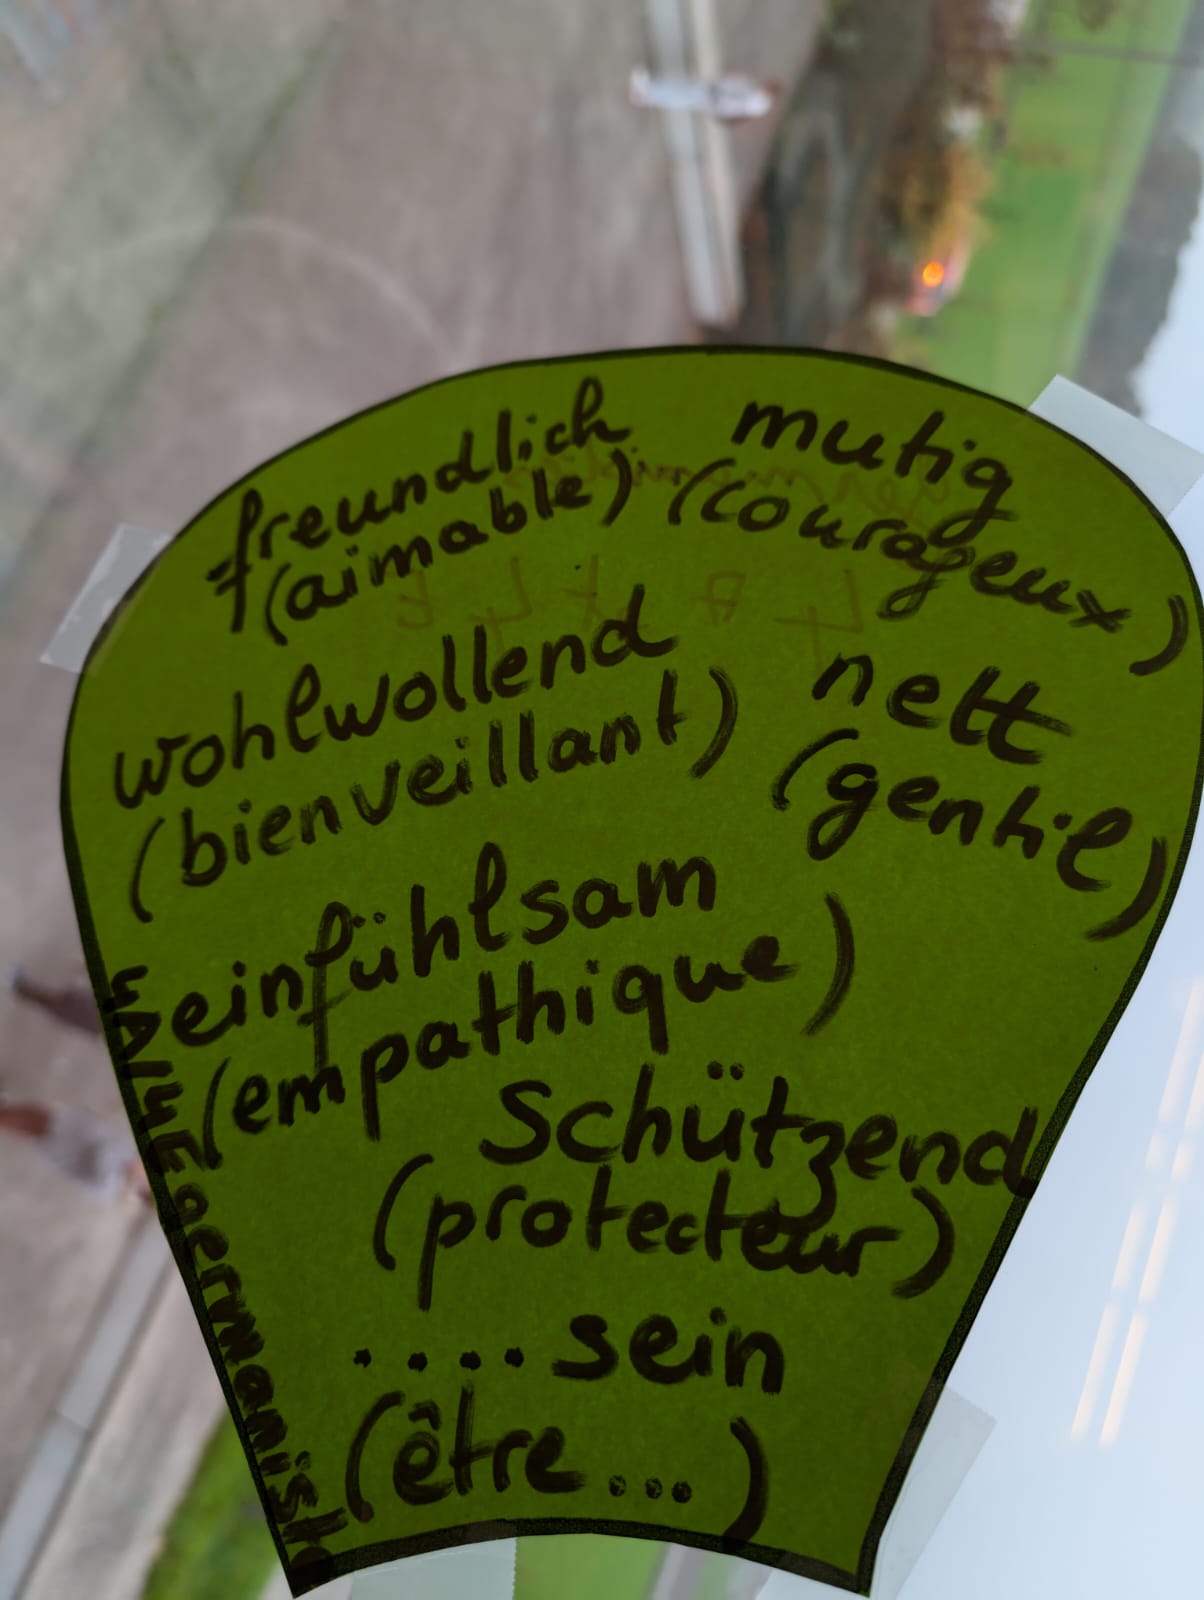 freundlich
(aimable)
mutig
(courageux)
wohlwollend
(bienveillant)
nett
(gentil)
einfühlsam
(empathique)
schützend
(protecteur)
.... sein
(être...)
germaniste